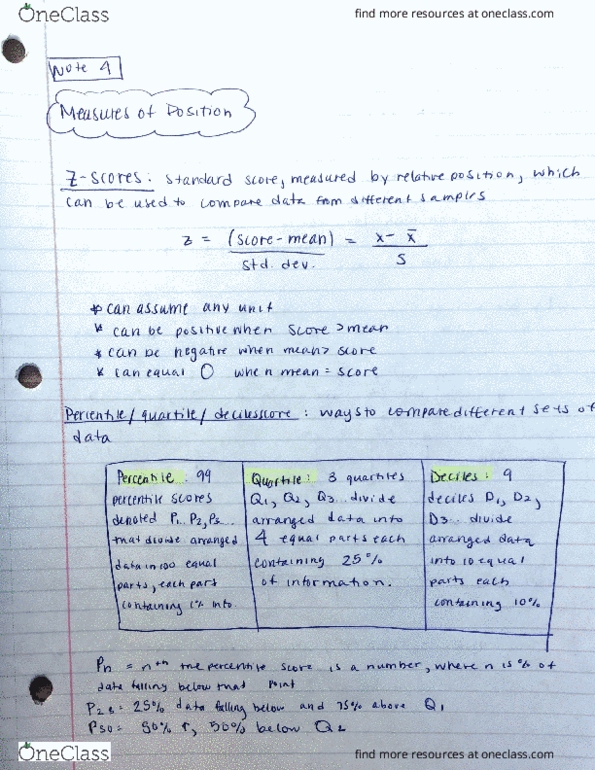 OneClass
find more resources at oneclass.com
Note 4
Measures of Position
Z-scores: standard score, measured by relative position, which
can be used to compare data from different samples
z = (score-mean) = x - x̄
std. dev. s
* can assume any unit
* can be positive when score > mean
* can be negative when mean > score
* can equal 0 when mean = score
Percentile/quartile/decile score: ways to compare different sets of
data
Percentile: 99
percentile scores
denoted P1.. P2, P3...
that divide arranged
data in 100 equal
parts, each part
containing 1% info.
Quartile: 3 quartiles
Q1, Q2, Q3... divide
arranged data into
4 equal parts each
containing 25%
of information.
Deciles: 9
deciles D1, D2,
D3... divide
arranged data
into 10 equal
parts each
containing 10%
Pn = nth the percentile score is a number, where n is % of
data falling below that point
= 25% data falling below and 75% above Q1
P50 = 50% ↑, 50% below Q2
OneClass
find more resources at oneclass.com